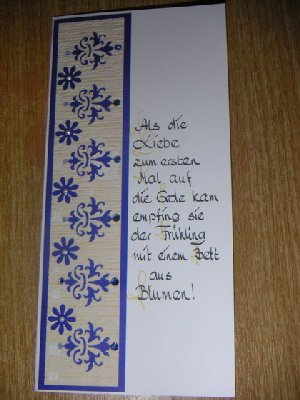 Als die
Liebe
zum ersten
Mal auf
die Erde kam
empfing sie
der Frühling
mit einem Bett
aus
Blumen!